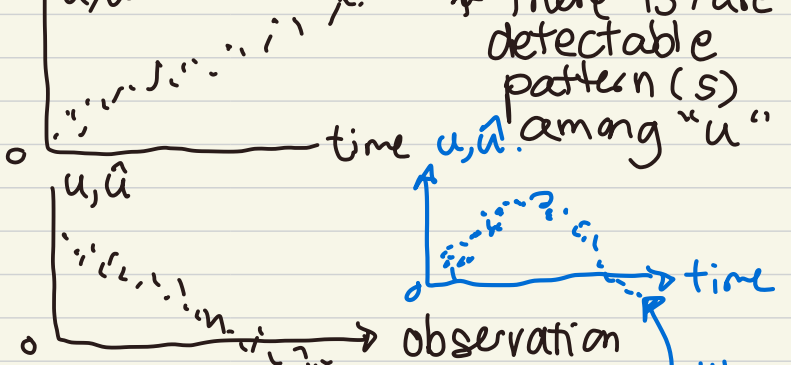 detectable
pattern(s)
among "u"
time
0
u,û
u,û
0
time
0
observation